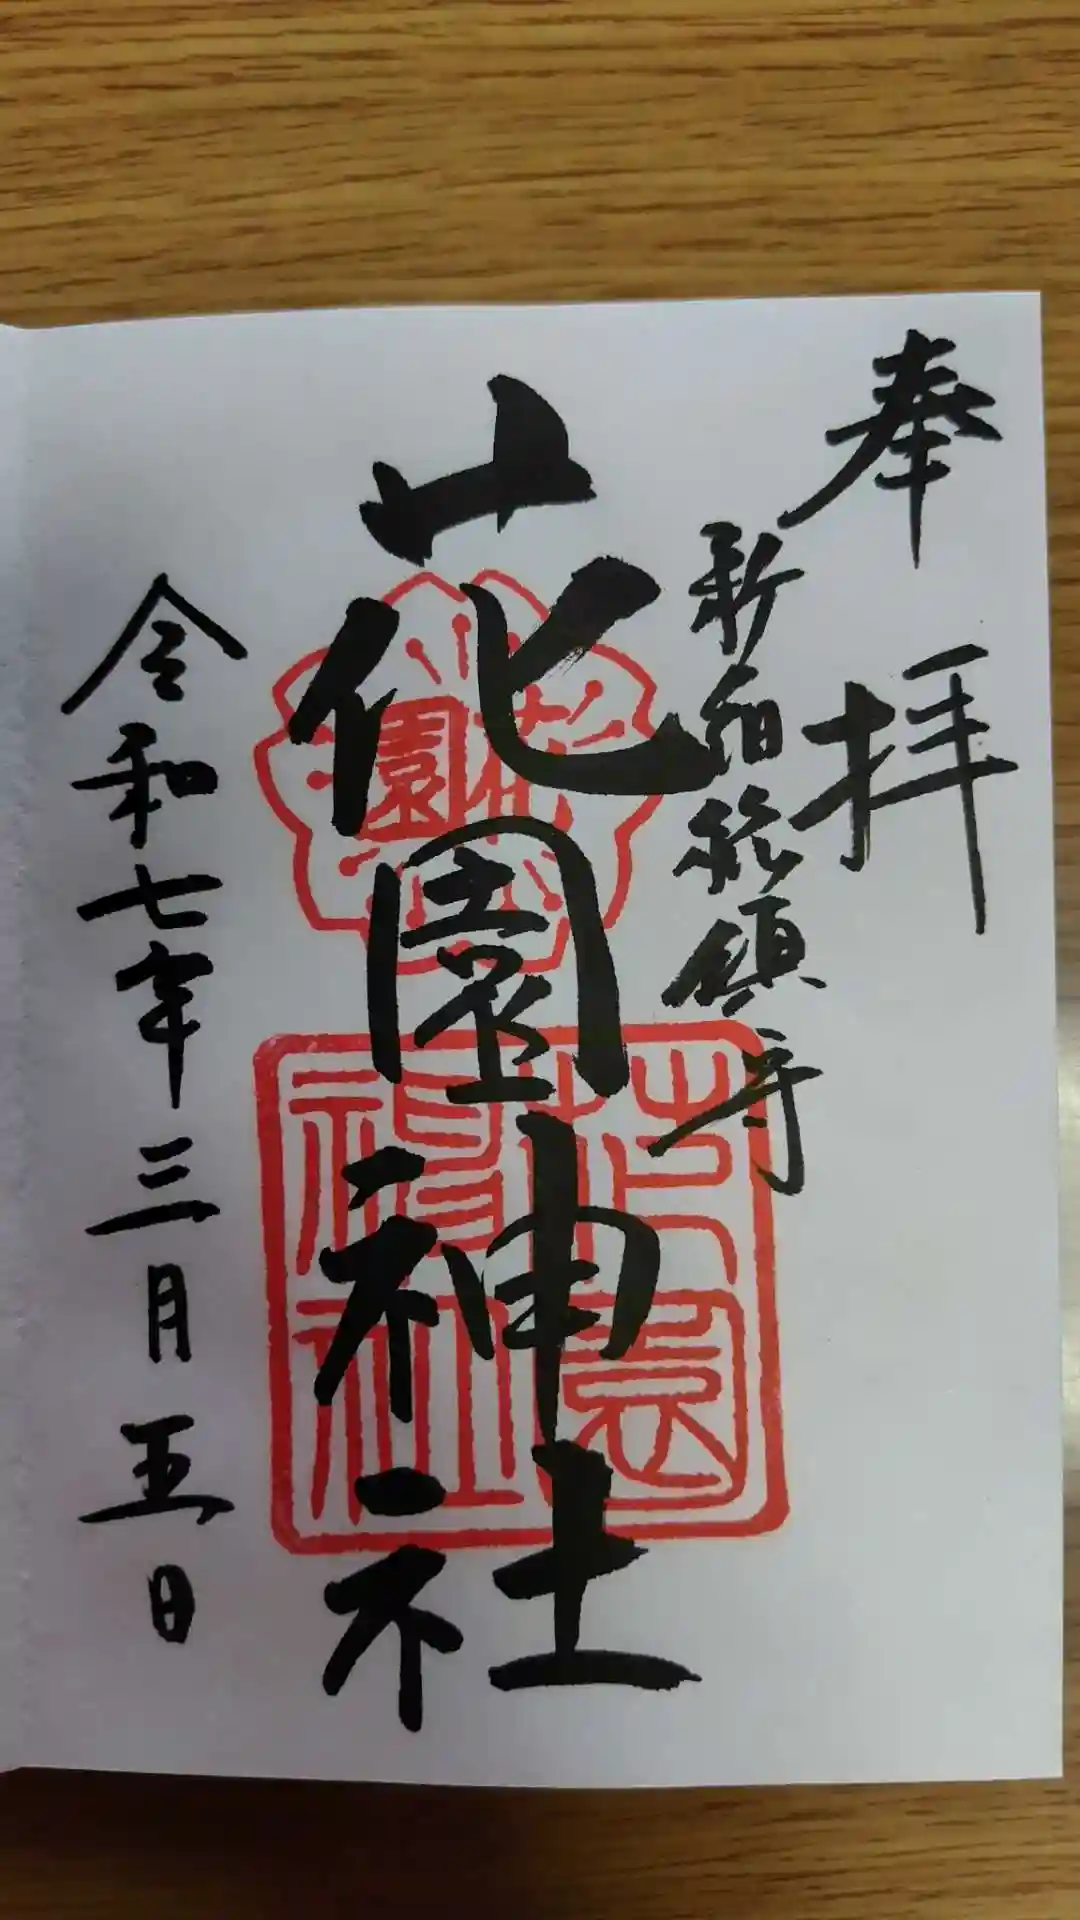 奉拝
新宿総鎮守
花園神社
令和七年三月五日
花園
花園神社